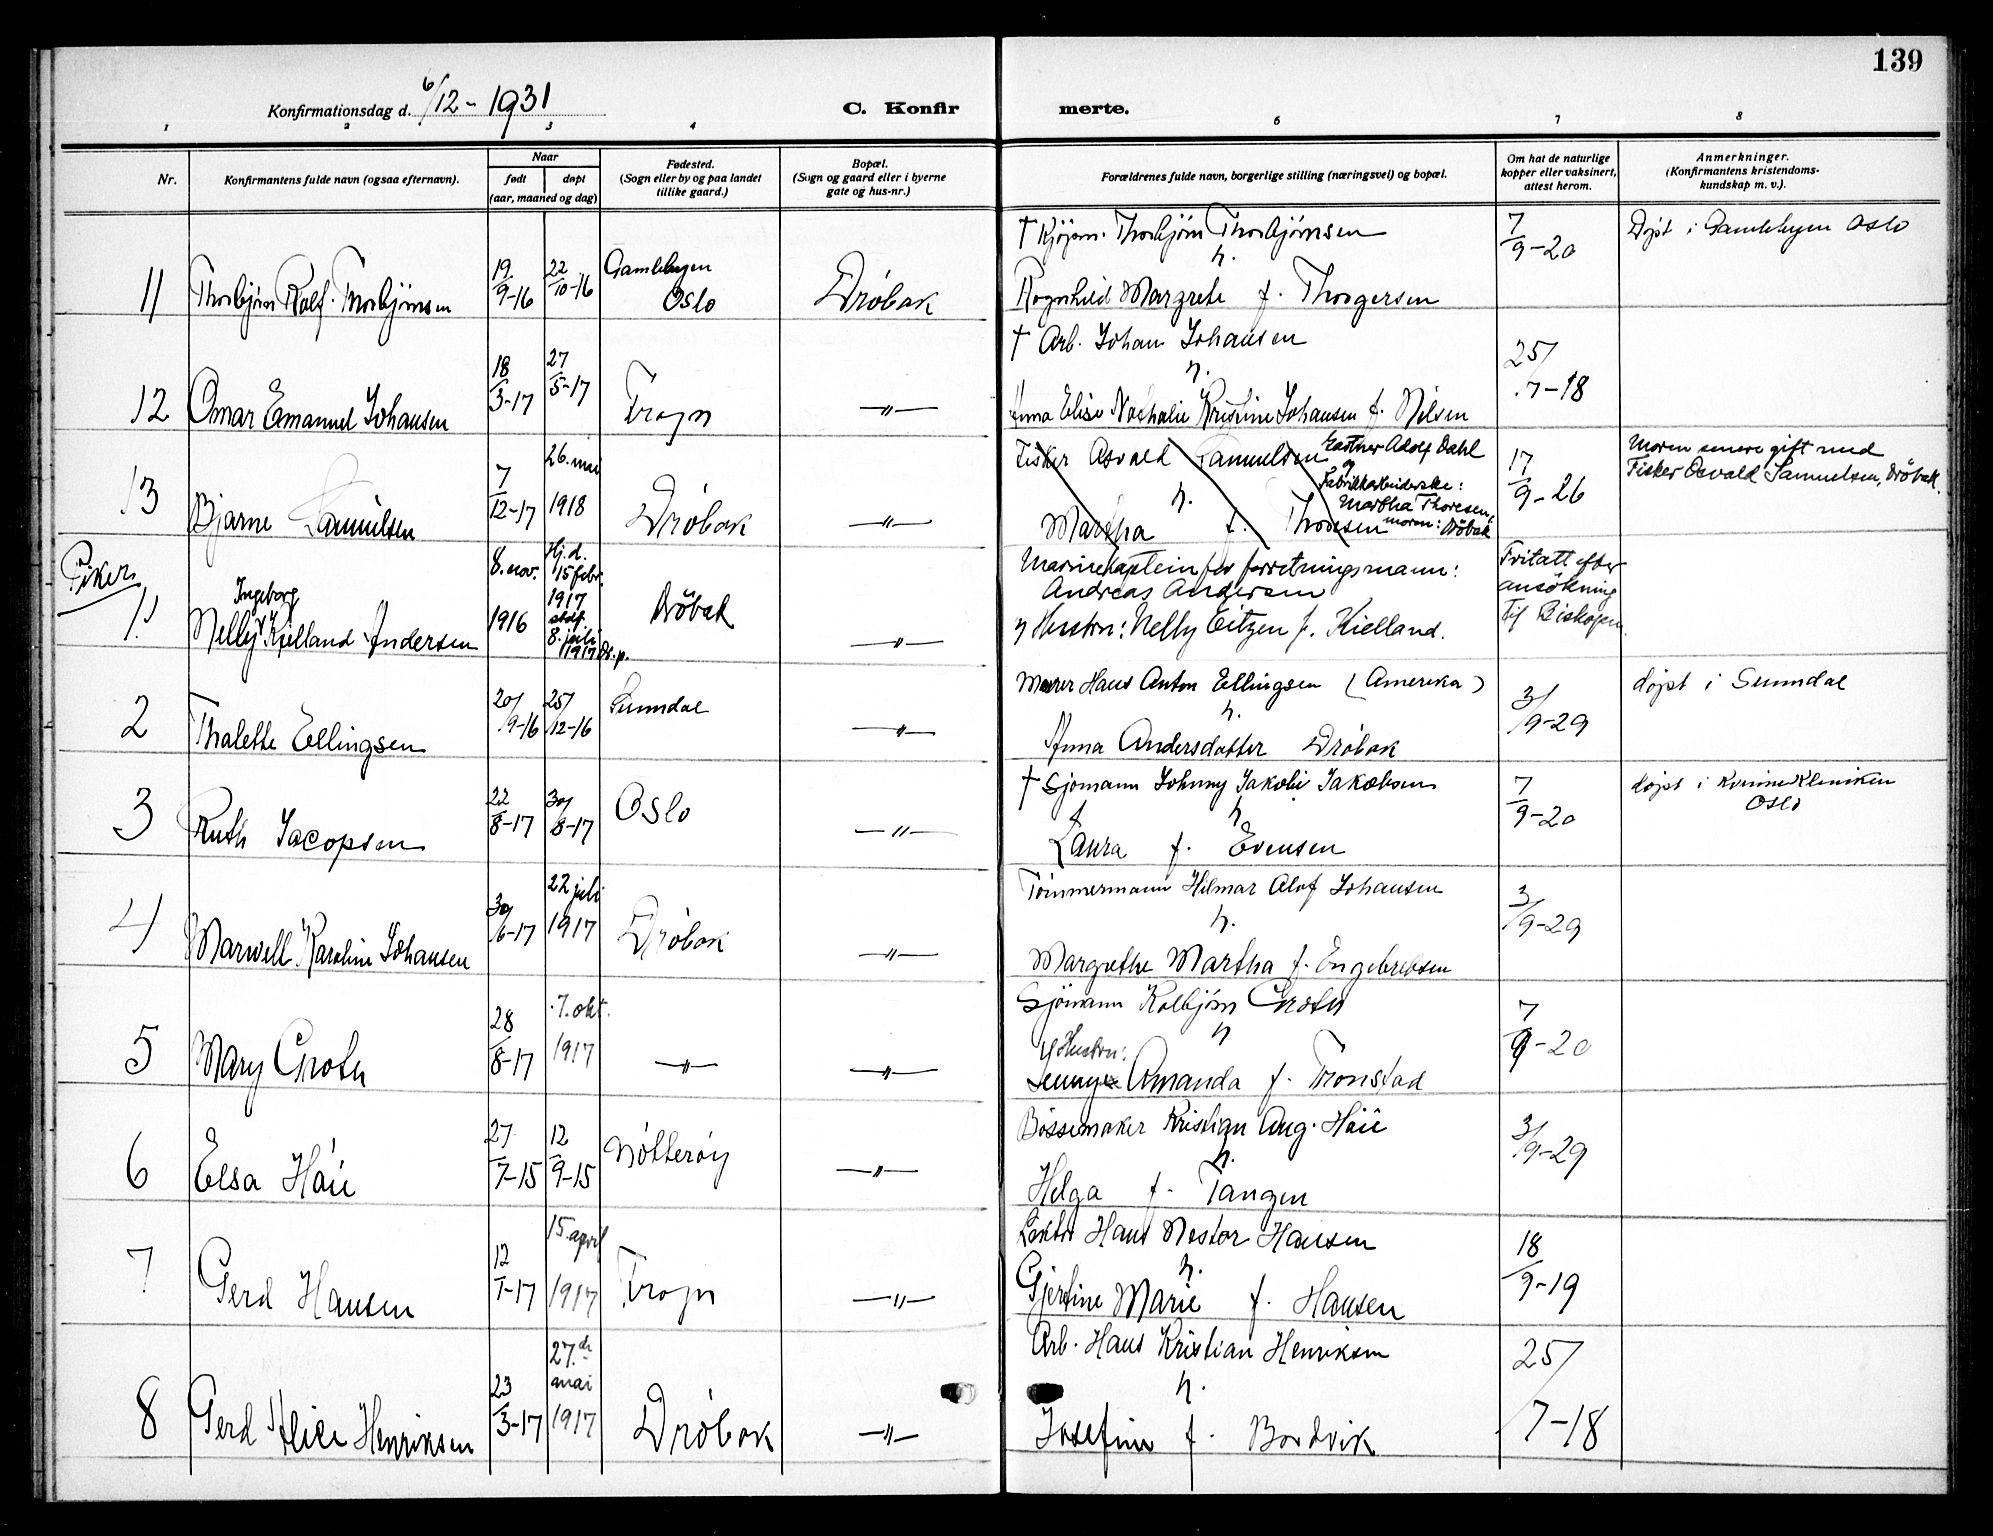 139
Konfirmationsdag d. 6/12 - 1931
C. Konfir merte.
1 2 3 4 6 7 8
Nr.
Konfirmantens fulde navn (ogsaa efternavn).
Naar
født døpt
(aar, maaned og dag)
Fødested.
(Sogn eller by og paa landet
tillike gaard.)
Bopæl.
(Sogn og gaard eller i byerne
gate og hus-nr.)
Forældrenes fulde navn, borgerlige stilling (næringsvei) og bopæl.
Om hat de naturlige
kopper eller vaksinert,
attest herom.
Anmerkninger.
(Konfirmantens kristendoms-
kundskap m. v.).
† Thorbjørn Thorbjørnsen
7/9-20
Døpt i Gamlebyen Oslo
11 Thorbjørn Rolf Thorbjørnsen 19/9-16 22/10-16 Gamlebyen Oslo Drøbak
Ragnhild Margrete f. Thorgersen
† Arb. Johan Johansen
12 Omar Emanuel Johansen 18/3-17 27/5-17 Frogn —"—
Anna Elise Nathalie Kristine Johansen f. Nilsen
25/7-18
Fisker Osvald Samuelsen
Martha f. Thoresen
Gartner Adolf Dahl
og
Fabrikkarbeiderske:
Martha Thoresen,
Drøbak
13 Bjarne Samuelsen 7/12-17 26. mai 1918 Drøbak —"—
17/9-26
Moren senere gift med
Fisker Osvald Samuelsen, Drøbak.
Piker
1. Nelly Ingeborg Kielland Andersen 8. nov. 1916
Hj.d. 15 febr. 1917 stdf. 8. juli 1917
Drøbak —"—
Marinekaptein forretningsmann:
Andreas Andersen
og Hustru: Nelly Eitzen f. Kielland.
Fritatt efter
ansökning
til Biskopen.
2 Thalette Ellingsen 20/9-16 25/12-16 Sunndal —"—
Murer Hans Anton Ellingsen (Amerika)
Anna Andersdatter Drøbak
3/9-29
døpt i Sunndal
3 Ruth Jacopsen 22/8-17 30/8-17 Oslo —"—
† Sjømann Johnny Jakobi Jakobsen
Laura f. Evensen
7/9-20
døpt i Kvinneklinikken
Oslo
4 Marwell Karoline Johansen 30/6-17 22 juli 1917 Drøbak —"—
Tømmermann Hilmar Olof Johansen
Margrethe Martha f. Engebretsen
3/9-29
5 Mary Groth 28/8-17 7. okt. 1917 —"— —"—
Sjömann Kolbjørn Groth
Hustru:
Jenny Amanda f. Tronstad
7/9-20
6 Elsa Håii 27/7-15 12/9-15 Nøtterøy —"—
Bøssemaker Kristian Aug. Håii
Helga f. Tangen
3/9-29
7 Gerd Hansen 12/1-17 15. april 1917 Frogn —"—
Hans Nestor Hansen
Gjertine Marie f. Hansen
18/9-19
8 Gerd Alice Henriksen 23/3-17 27. de mai 1917 Drøbak —"—
Arb. Hans Kristian Henriksen
Josefine f. Bordvik
25/7-18